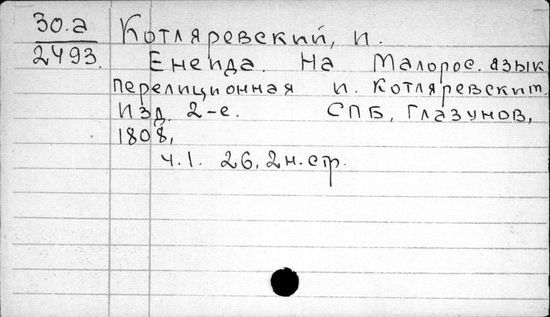 30.а
2493.
Котляревский, И.
Енеида. На Малорос. язык
перелиционная И. Котляревским.
Изд. 2-е. СПБ, Глазунов,
1808,
ч.1. 26, 2 н. стр.